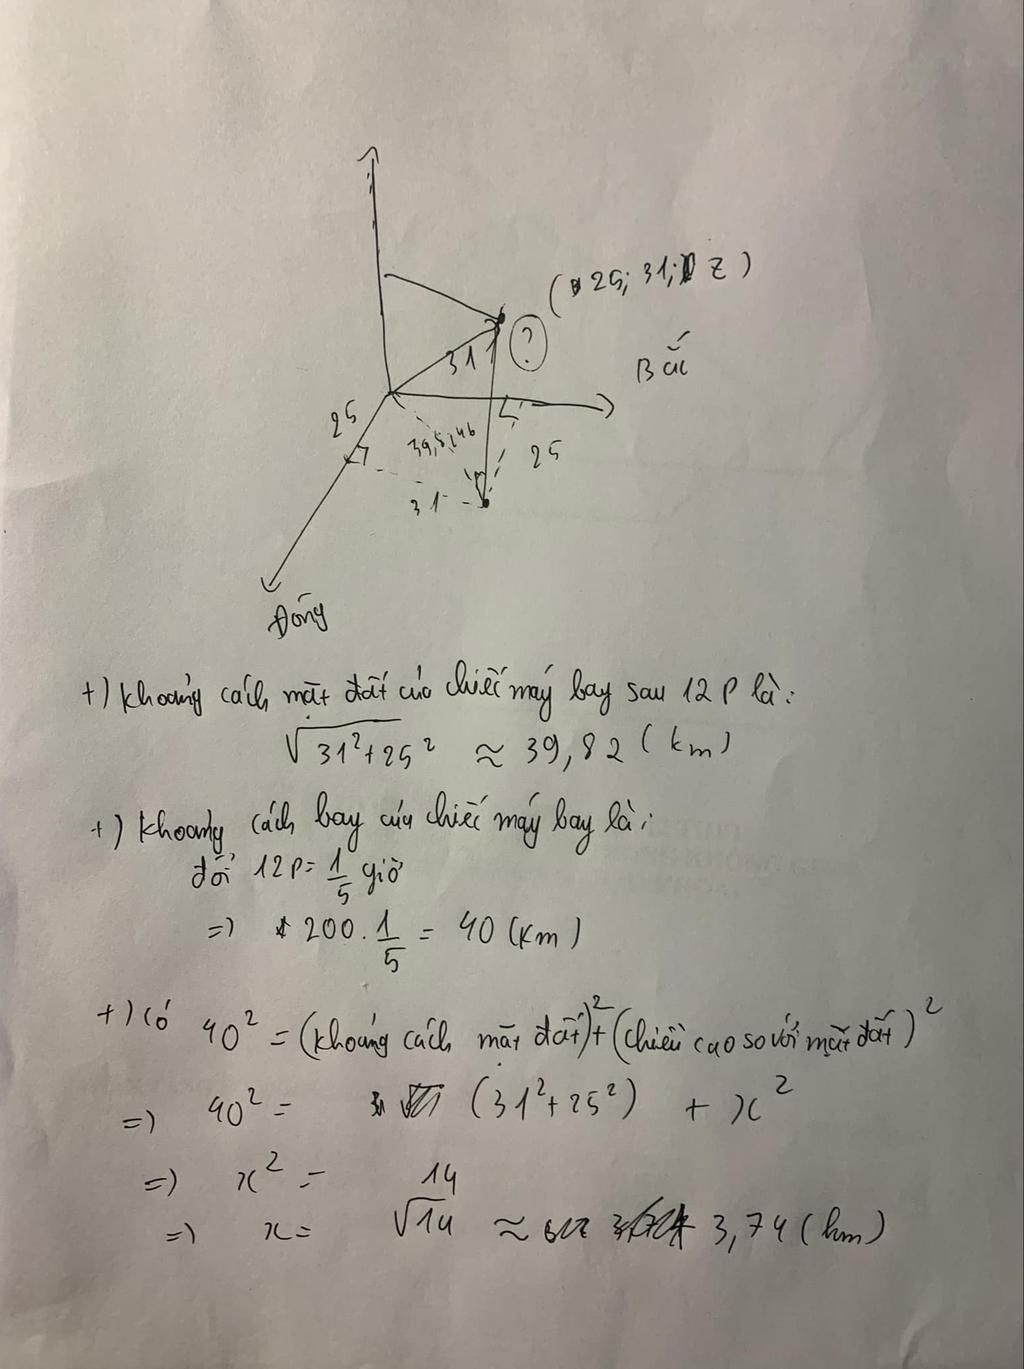 (25; 31; z)
?
31
Bắc
25
39,5,46
25
31
Đông
+) Khoảng cách mặt đất của chiếc máy bay sau 12 P là:
√31²+25² ≈ 39,82 (km)
+) Khoảng cách bay của chiếc máy bay là:
đổi 12P = 1/5 giờ
=> 200 . 1/5 = 40 (km)
+) có 40² = (khoảng cách mặt đất)² + (chiều cao so với mặt đất)²
=> 40² = (31²+25²) + x²
=> x² = 14
=> x = √14 ≈ 3,74 (km)